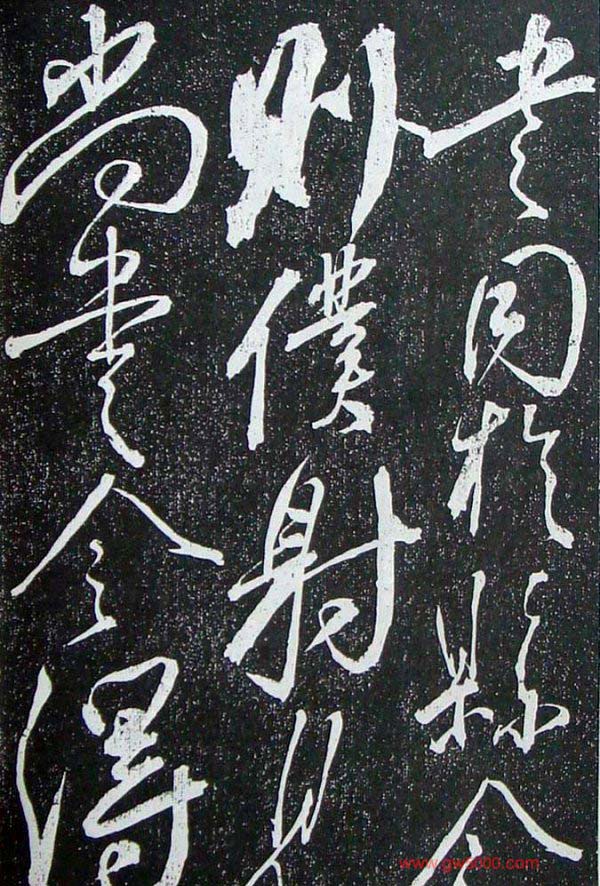 書同於縣令
則僕射見
尚書令得
www.gw5000.com